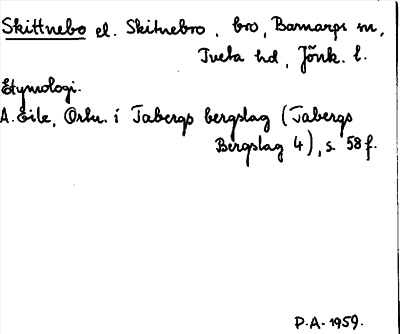 Skittnebo el. Skitnebro, bro, Barnarps sn,
Tveta hd, Jönk. l.
Etymologi.
A. Ejle, Ortn. i Tabergs bergslag (Tabergs
Bergslag 4), s. 58 f.
P.A. 1959.